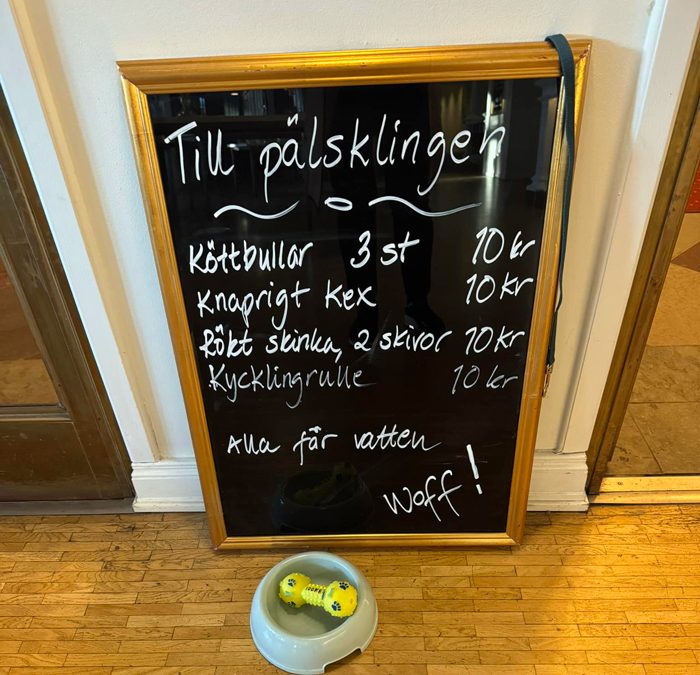 Till pälsklingen
Köttbullar 3 st 10 kr
Knaprigt kex 10 kr
Rökt skinka, 2 skivor 10 kr
Kycklingrulle 10 kr
Alla får vatten
Woff!